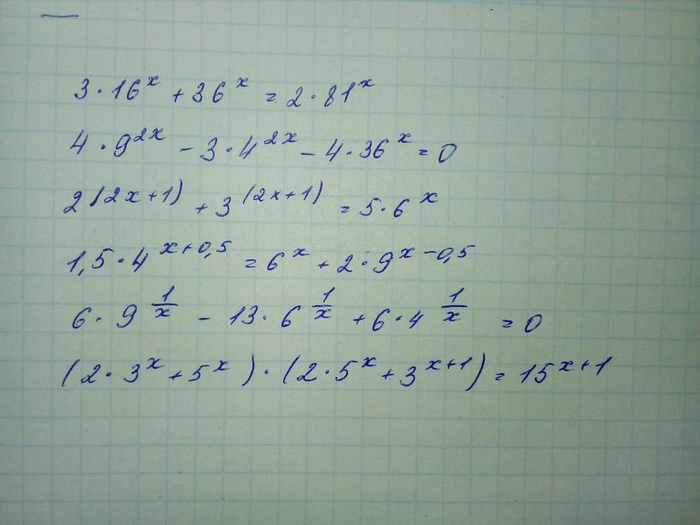 3·16^x + 36^x = 2·81^x
4·9^{2x} - 3·4^{2x} - 4·36^x = 0
2^{(2x+1)} + 3^{(2x+1)} = 5·6^x
1,5·4^{x+0,5} = 6^x + 2·9^{x-0,5}
6·9^{1/x} - 13·6^{1/x} + 6·4^{1/x} = 0
(2·3^x + 5^x)·(2·5^x + 3^{x+1}) = 15^{x+1}